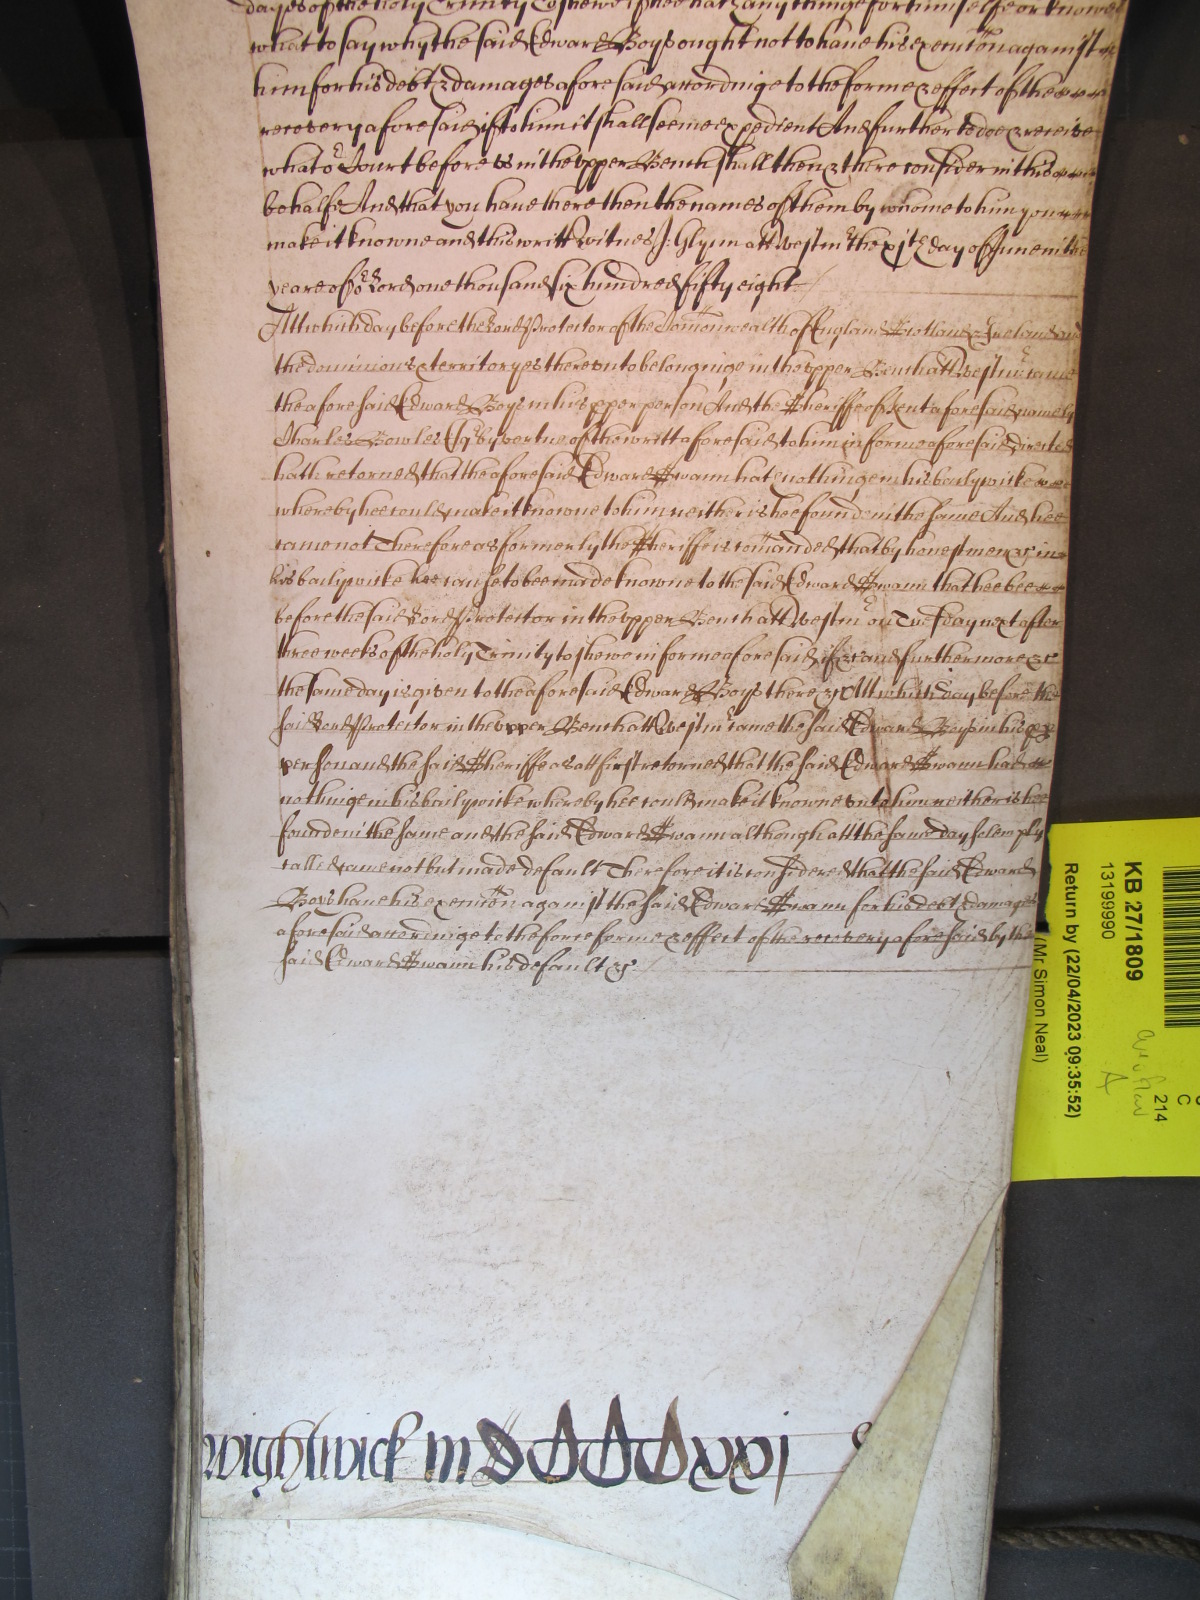 dayes of the holy Trinity to shewe if hee hath anythinge for himselfe or knowe
what to say why the said Edward Boys ought not to have his execucōn against
him for his debt & damages aforesaid accordinge to the forme & effect of the
recovery aforesaid if to him it shall seeme expedient And further to doe & receive
what oʳ Court before us in the upper Bench shall then & there consider in this
behalfe And that you have there then the names of them by whome to him you
make it knowne and this writt Witnes J: Glynn att Westmʳ the xjᵗʰ day of June in the
yeare of oʳ Lord one thousand six hundred fifty eight
Att which day before the Lord Protector of the Comōnwealth of England Scotland & Ireland and
the dominions & territoryes thereunto belonginge in the upper Bench att Westmʳ came
the aforesaid Edward Boys in his pper person And the Sheriffe of Kent aforesaid namely
Charles Bowles Esqʳ by vertue of the writt aforesaid to him in forme aforesaid directed
hath retorned that the aforesaid Edward Swann hath nothinge in his bailywicke
whereby hee could make it knowne to him neither is hee found in the same And hee
came not Therefore as formerly the Sheriffe is comānded that by honest men &c in
his bailywicke hee cause to bee made knowne to the said Edward Swann that hee bee
before the said Lord Protector in the upper Bench att Westmʳ on Tuesday next after
three weeks of the holy Trinity to shewe in forme aforesaid if &c and furthermore &c
the same day is given to the aforesaid Edward Boys there &c Att which day before the
said Lord Protector in the upper Bench att Westmʳ came the said Edward Boys in his
person and the said Sheriffe as att first retorned that the said Edward Swann had
nothinge in his bailywicke whereby hee could make it knowne unto him neither is hee
found in the same and the said Edward Swann although att the same day solemply
called came not but made default Therefore it is considered that the said Edward
Boys have his execucōn against the said Edward Swann for his debt & damages
aforesaid accordinge to the force forme & effect of the recovery aforesaid by the
said Edward Swann his default &c
Wightwick
xxj
KB 27/1809
13199990
Return by (22/04/2023 09:35:52)
(Mr Simon Neal)
C
214
A